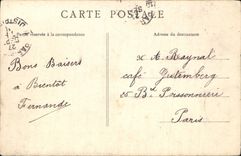 CARTE POSTALE
Partie réservée à la correspondance
Adresse du destinataire
Bons Baisers
à Bientôt
Fernande
A. Raynal
café Gutemberg
Bd Poissonniere
Paris